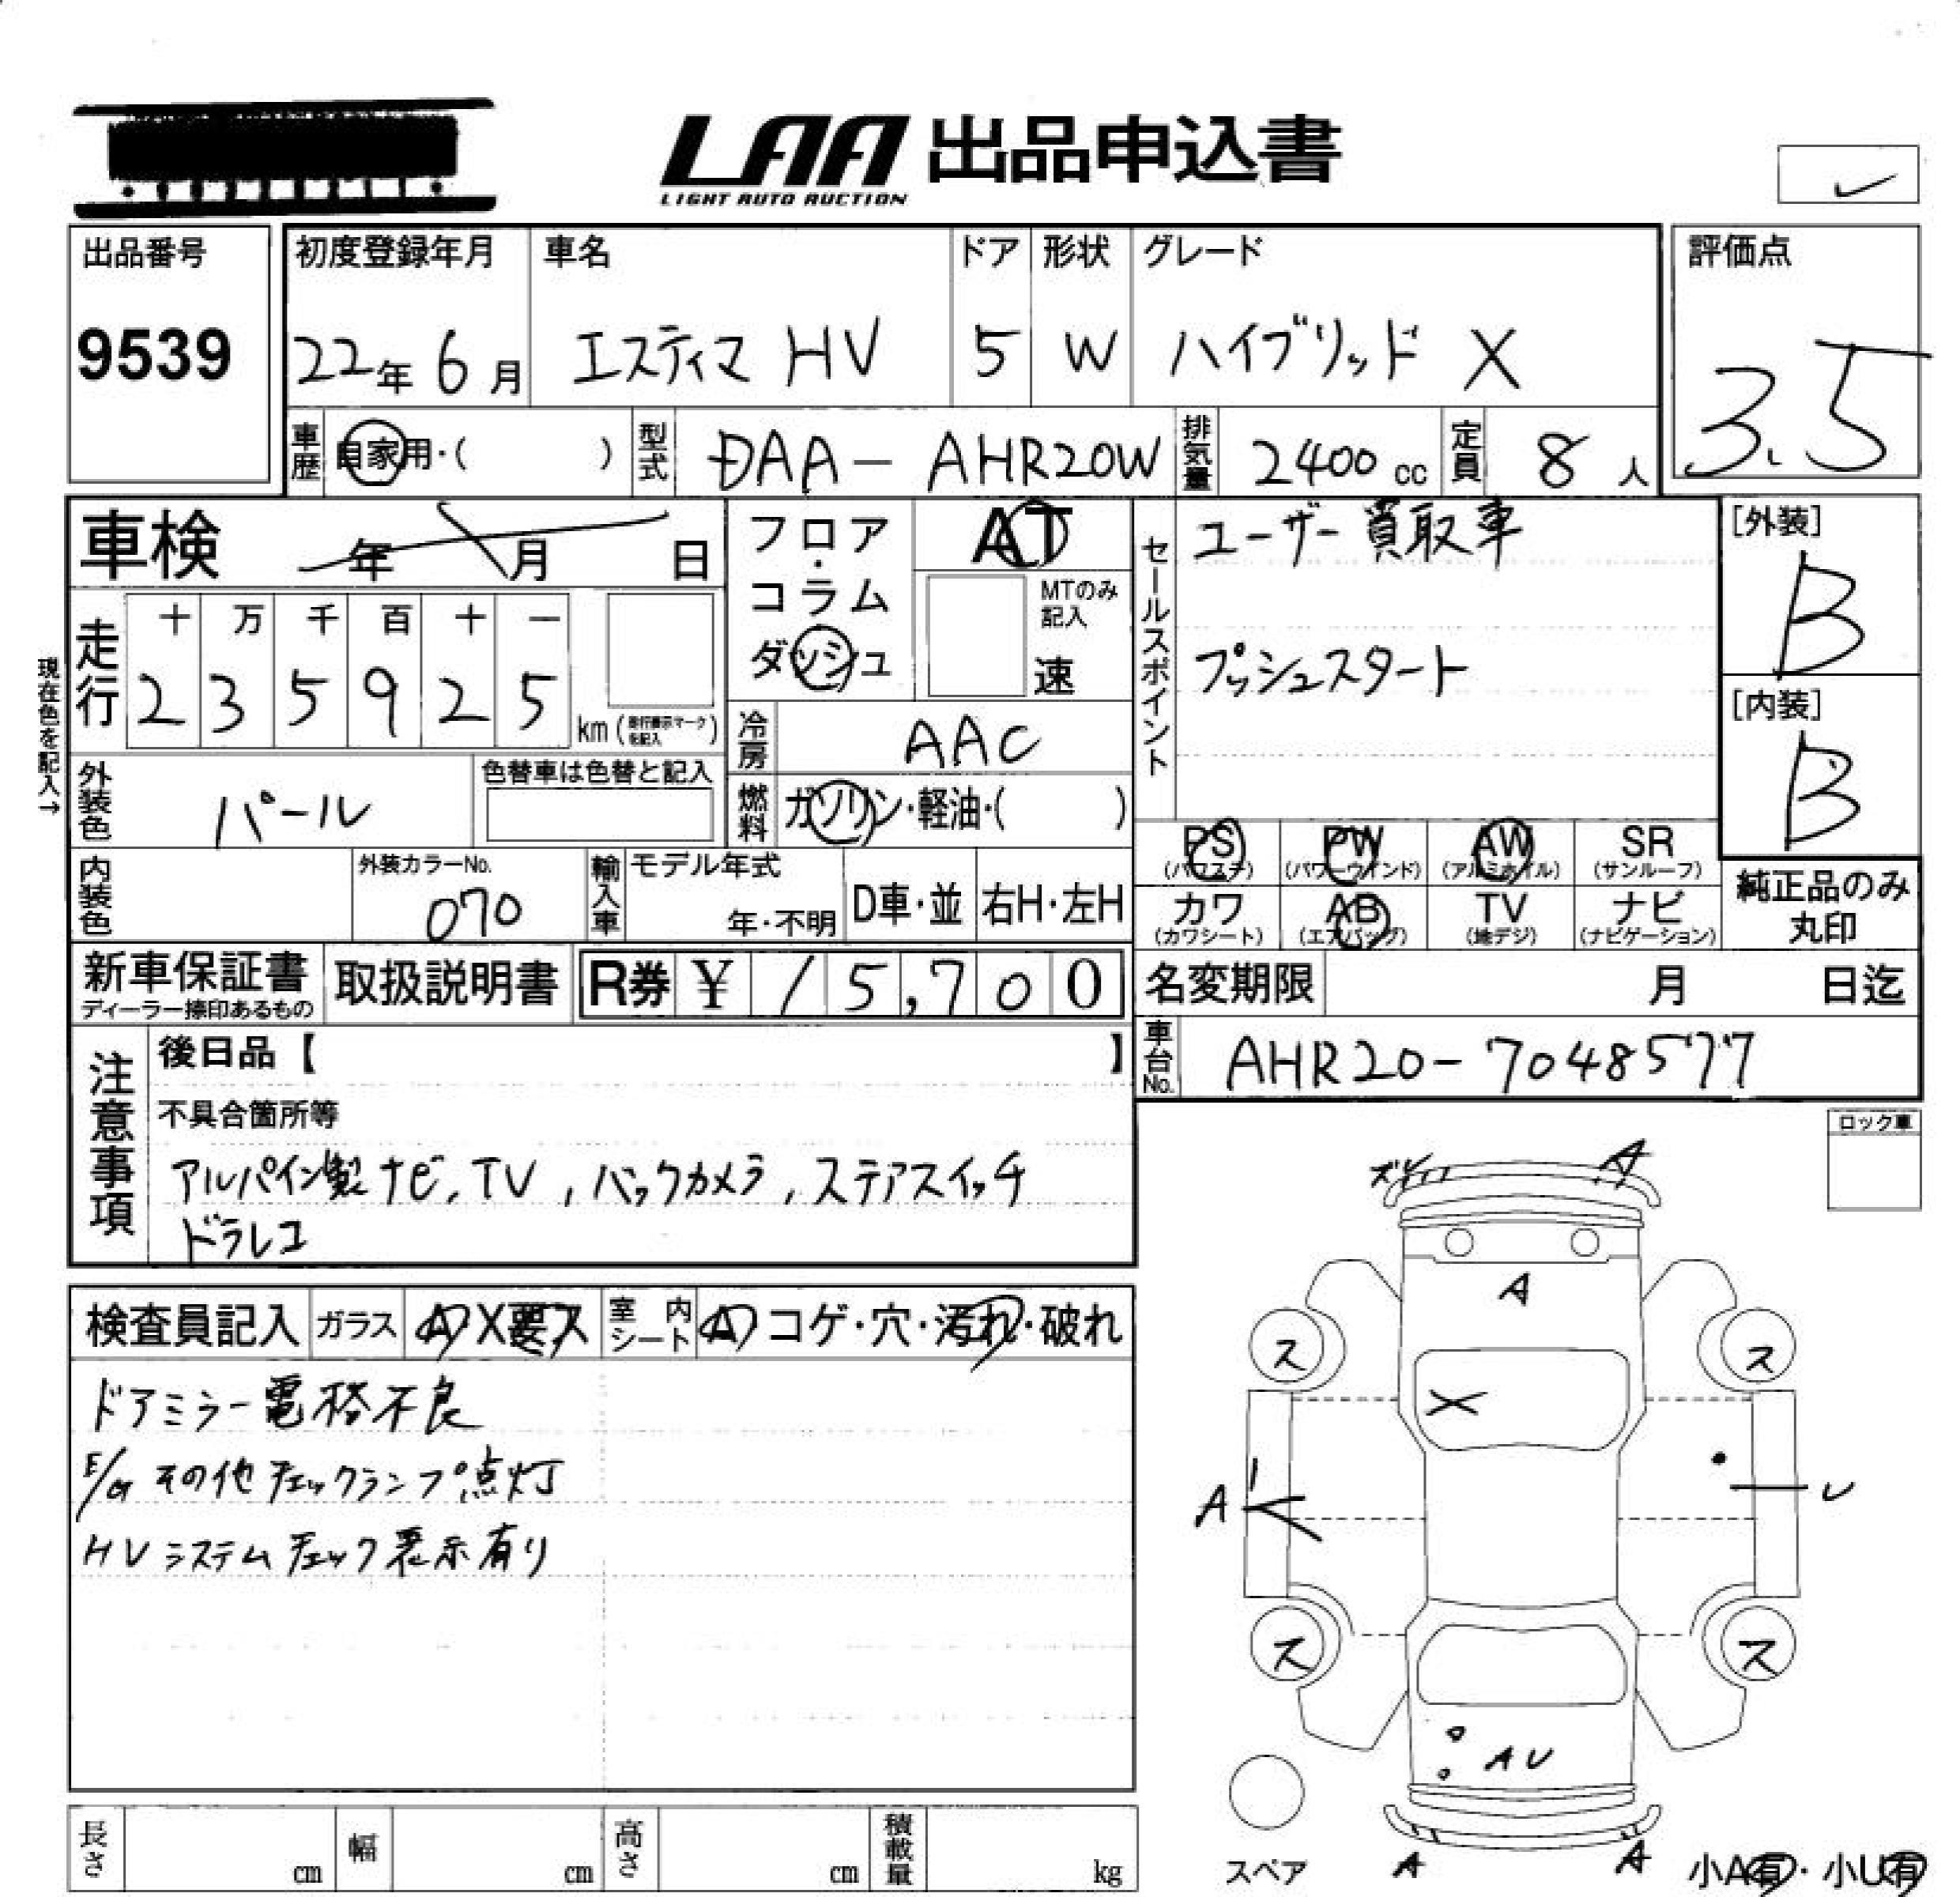 LAA 出品申込書
LIGHT AUTO AUCTION
出品番号
9539
初度登録年月
22年 6月
車名
エスティマ HV
ドア
5
形状
W
グレード
ハイブリッド X
評価点
3.5
車歴
自家用・( )
型式
DAA-AHR20W
排気量
2400 cc
定員
8 人
車検 年 月 日
フロア・コラム
ダッシュ
AT
MTのみ記入
速
セールスポイント
ユーザー買取車
プッシュスタート
[外装]
B
[内装]
B
現在色を記入→
走行
十 万 千 百 十 一
2 3 5 9 2 5
km (走行表示マークを記入)
冷房
AAC
外装色
パール
色替車は色替と記入
燃料
ガソリン・軽油・( )
PS
(パワステ)
PW
(パワーウインド)
AW
(アルミホイル)
SR
(サンルーフ)
カワ
(カワシート)
AB
(エアバッグ)
TV
(地デジ)
ナビ
(ナビゲーション)
純正品のみ
丸印
内装色
外装カラーNo.
070
輸入車
モデル年式
年・不明
D車・並
右H・左H
新車保証書
ディーラー捺印あるもの
取扱説明書
R券 ¥ 15,700
名変期限 月 日迄
車台No.
AHR20-7048577
注意事項
後日品【 】
不具合箇所等
アルパイン製ナビ,TV,バックカメラ,ステアスイッチ
ドラレコ
ロック車
検査員記入
ガラス
A X 要ス
室内シート
A コゲ・穴・汚れ・破れ
ドアミラー電格不良
E/G その他チェックランプ点灯
HVシステムチェック表示有り
ズレ
A
A
ス
ス
X
A
U
ス
ス
A U
A
A
スペア
小A有・小U有
長さ cm
幅 cm
高さ cm
積載量 kg